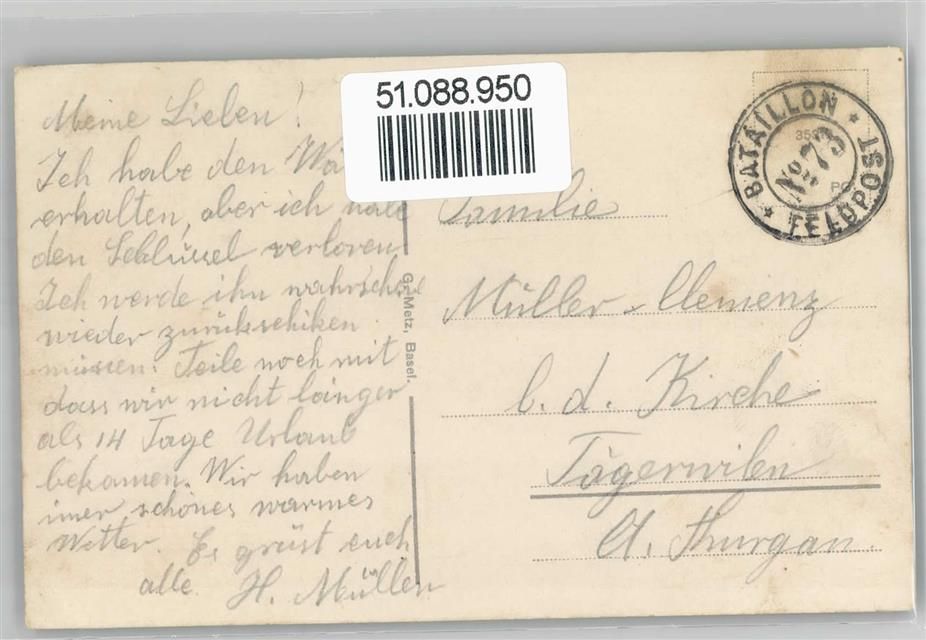 51.088.950
BATAILLON
No. 73
FELDPOST
Meine Lieben!
Ich habe den
erhalten, aber ich habe
den Schlüssel verloren
Ich werde ihn
wieder zurükschiken
müssen. Teile noch mit
dass wir nicht länger
als 14 Tage Urlaub
bekamen. Wir haben
imer schönes warmes
Wetter. Es grüst euch
alle H. Müller
Gr. Metz, Basel.
Familie
Müller-Clemenz
b. d. Kirche
Tägerwilen
Ct. Thurgau.